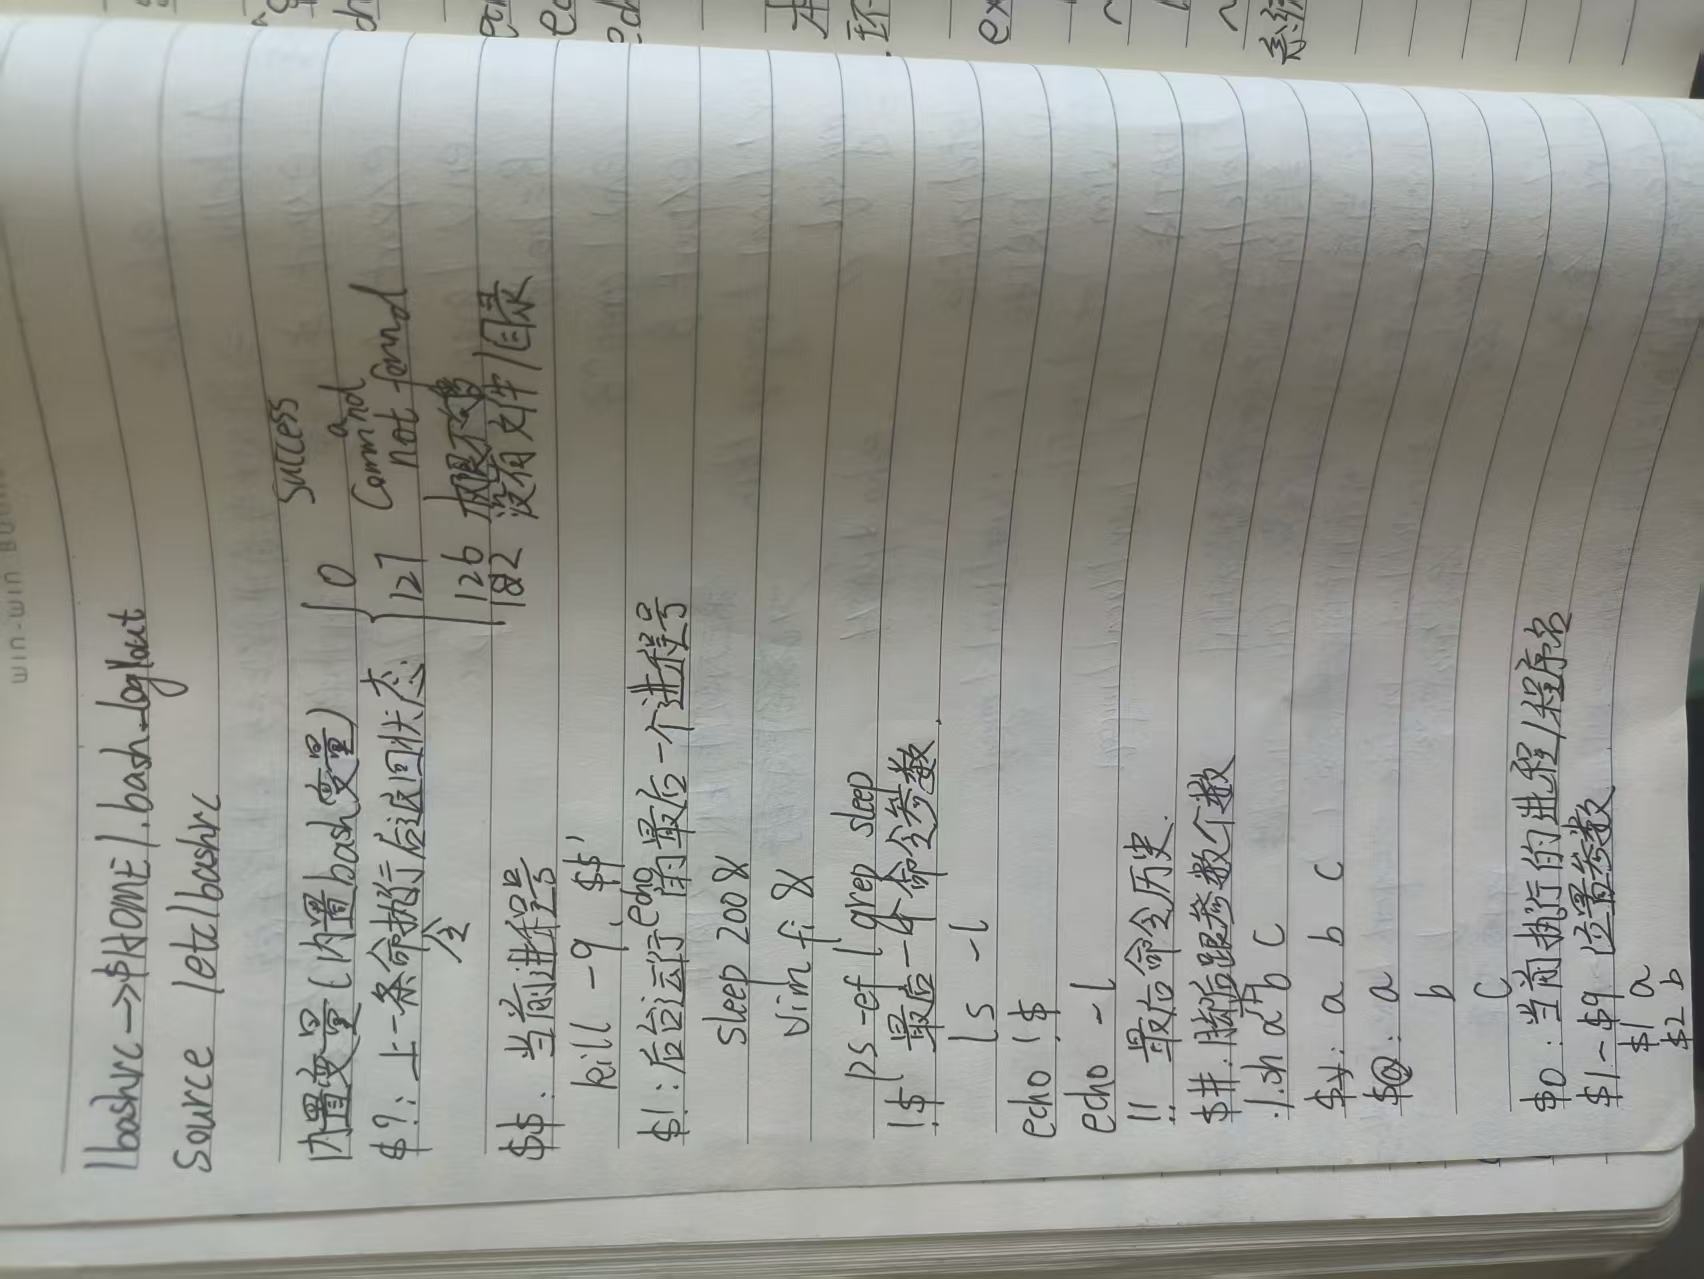 /bashrc→$HOME/.bash_loglout
source /etc/bashrc
内置变量(内置bash变量)
$?: 上一条命令执行后返回状态 { 0 success
127 Command not found
126 权限不够
1&2 没有文件/目录
$$: 当前进程号
kill -9 '$$'
$!: 后台运行echo的最后一个进程号
sleep 200 &
vim fi &
ps -ef | grep sleep
!$ 最后一个命令参数.
ls -l
echo !$
echo -l
!! 最后命令历史.
$#: 脚后跟参数个数
./.sh a b c
$*: a b c
$@: a
b
c
$0: 当前执行的进程/程序名
$1~$9 位置参数
$1 a
$2 b
win-win
系统